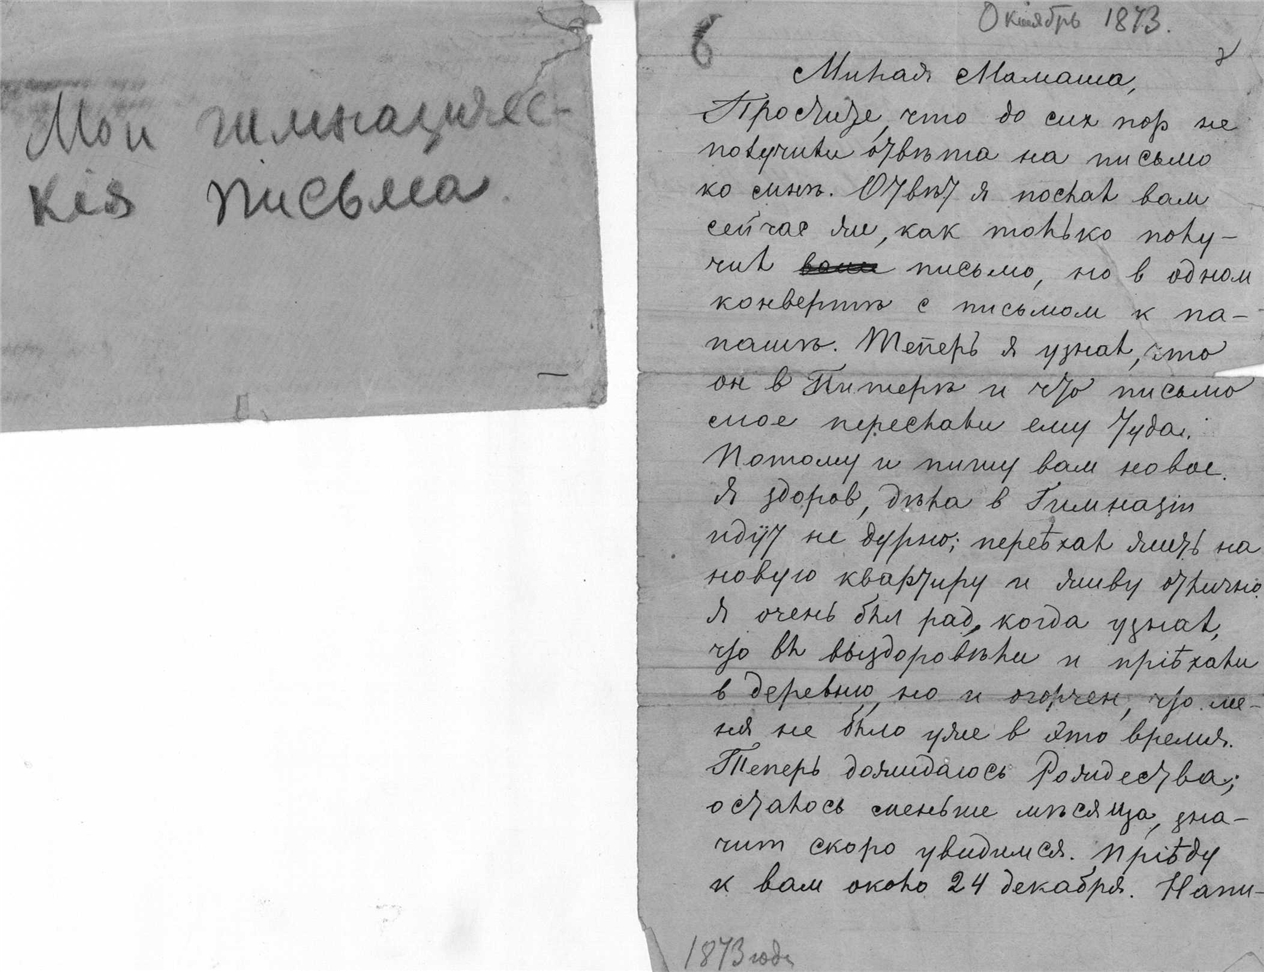 Мои гимназичес-
кія письма.
Октябрь 1873.
6
Милая Мамаша,
Простите, что до сих пор не
получили отвѣта на письмо
ко мнѣ. Отвѣт я послал вам
сейчас же, как только полу-
чил письмо, но в одном
конвертѣ с письмом к па-
пашѣ. Теперь я узнал, что
он в Питерѣ и что письмо
мое переслали ему туда.
Потому и пишу вам новое.
Я здоров, дѣла в Гимназіи
идут не дурно; переѣхал жить на
новую квартиру и живу отлично.
Я очень был рад, когда узнал,
что вы выздоровѣли и пріѣхали
в деревню, но и огорчен, что ме-
ня не было уже в это время.
Теперь дожидаюсь Рождества;
осталось меньше мѣсяца, зна-
чит скоро увидимся. Пріѣду
к вам около 24 декабря. Напи-
1873 года